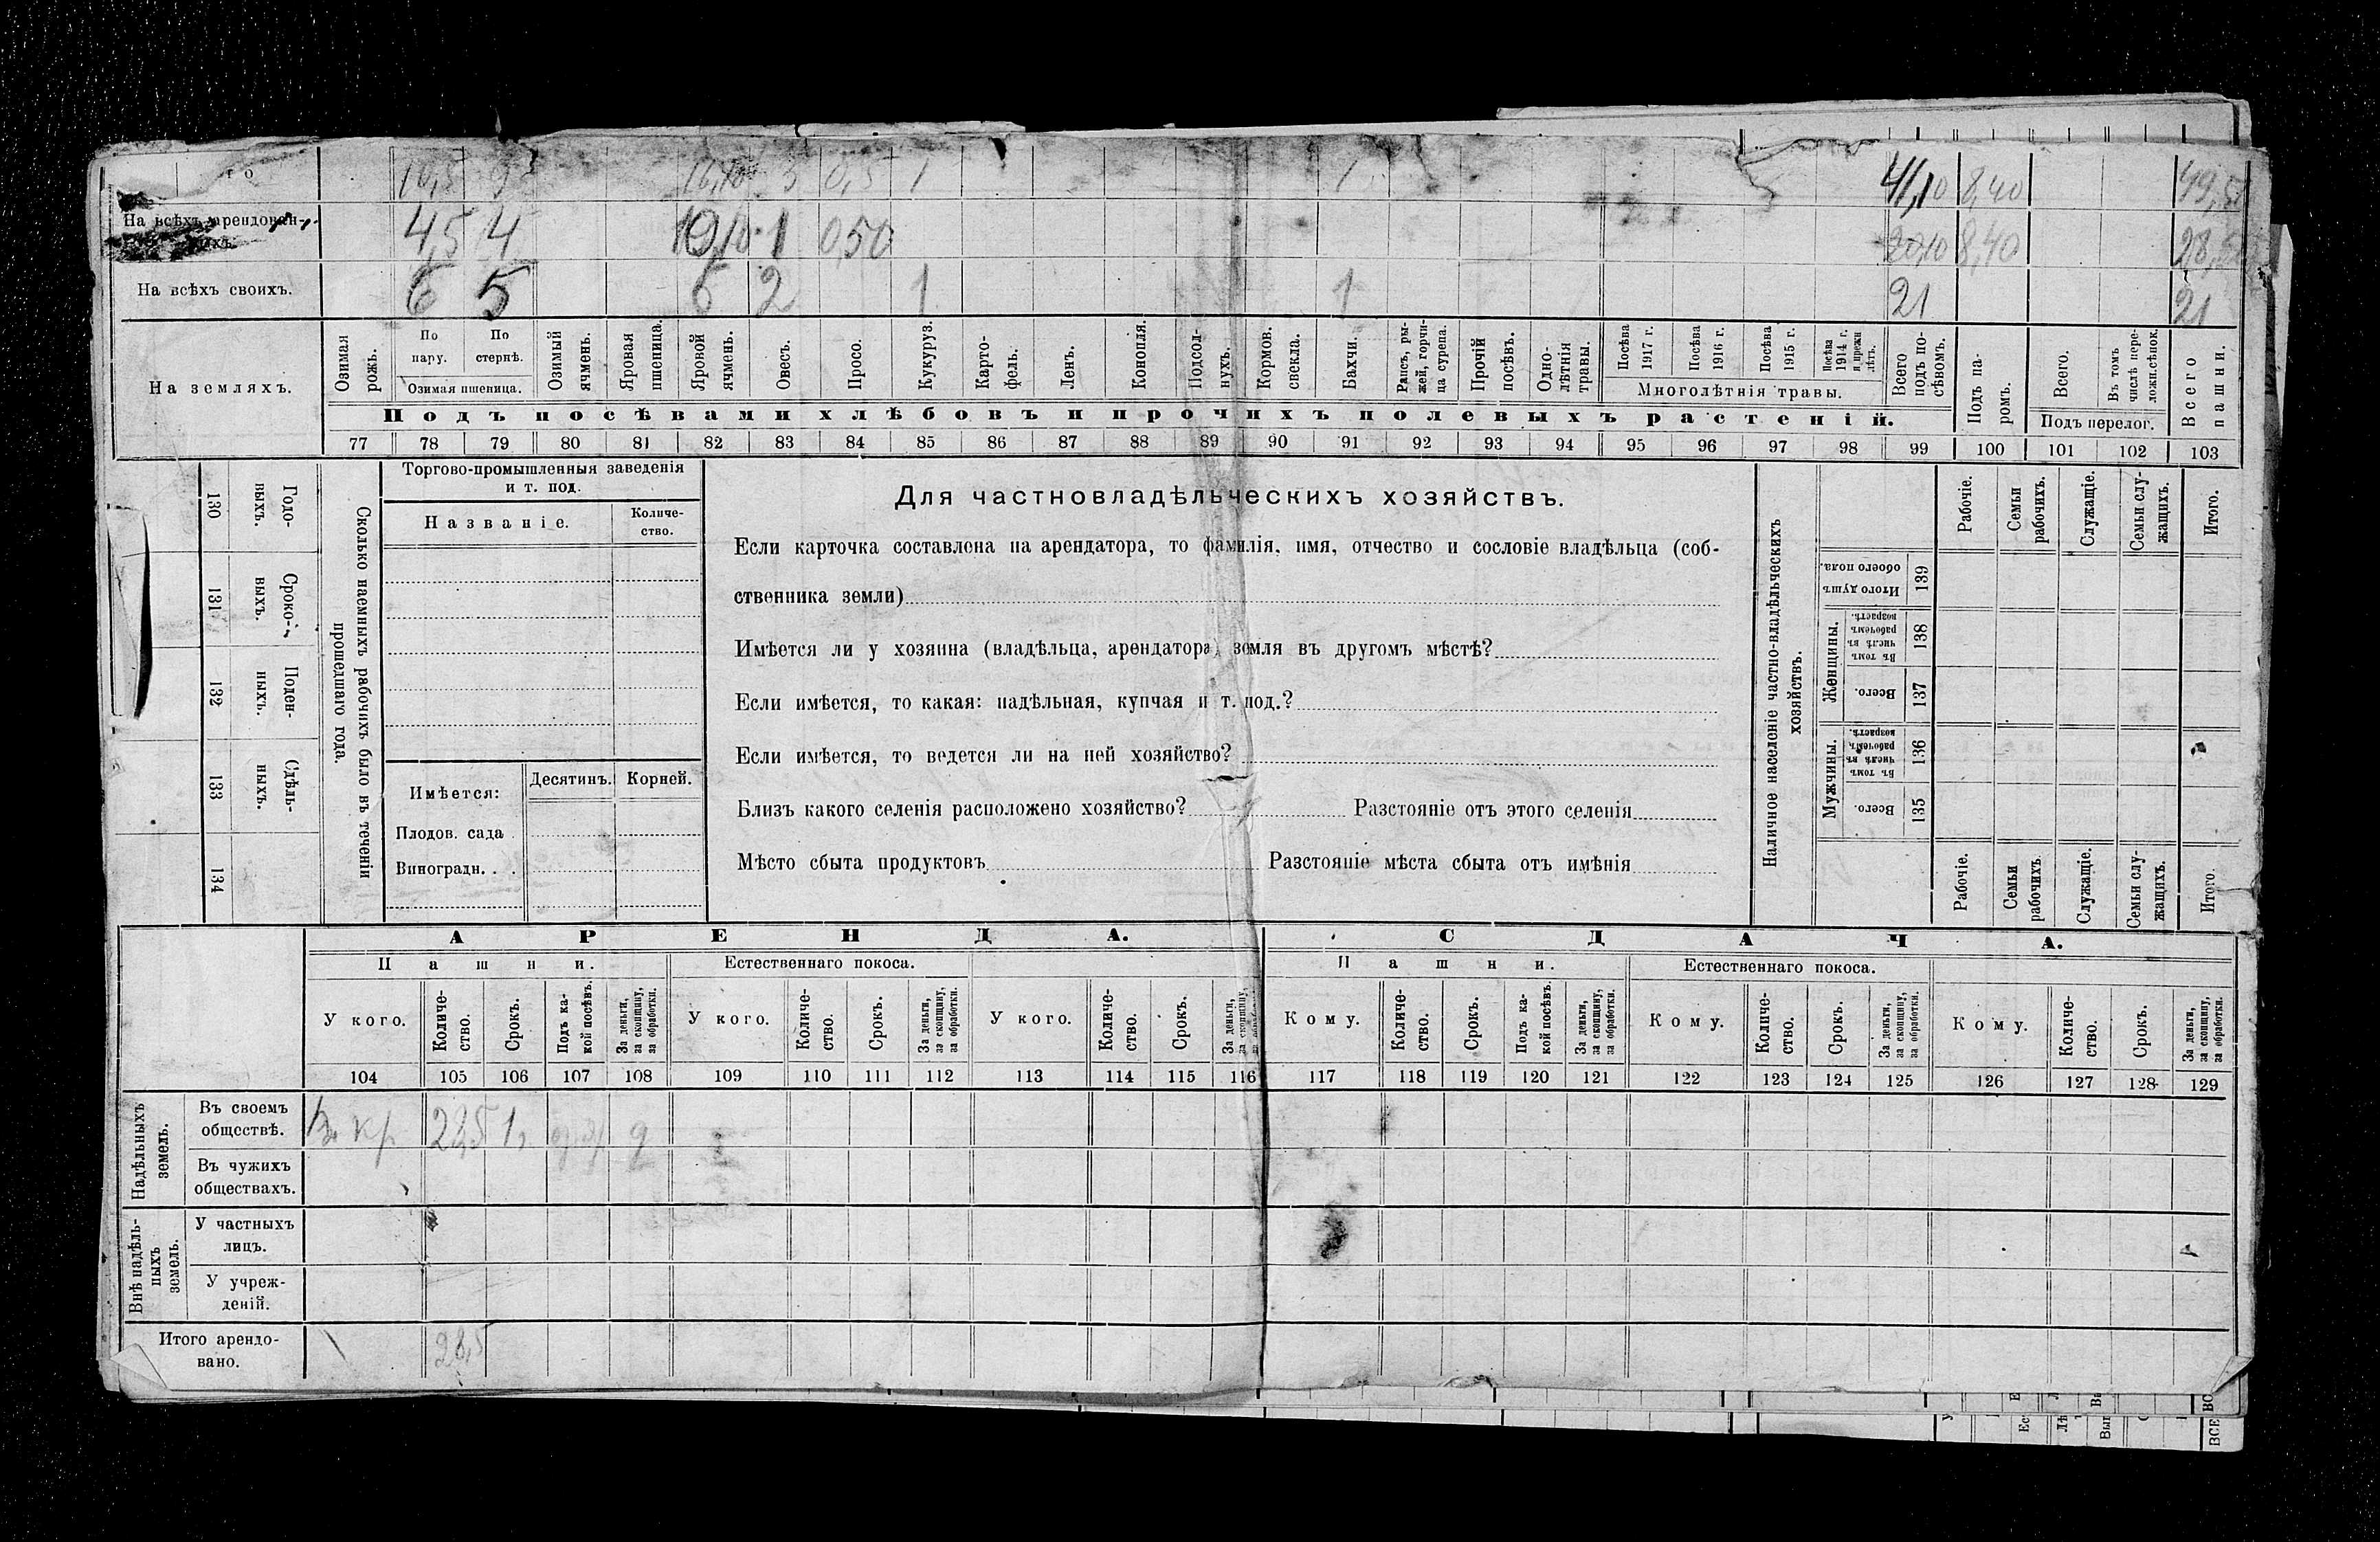 го 10,5 9 16,10 3 0,5 1 1 41,10 8,40 49,5
На всѣхъ арендован-
ныхъ. 4,5 4 10,10 1 0,50 20,10 8,40 28,5
На всѣхъ своихъ. 6 5 6 2 1 1 21 21
На земляхъ.
Озимая рожь.
По пару.
По стернѣ.
Озимая пшеница.
Озимый ячмень.
Яровая пшеница.
Яровой ячмень.
Овесъ.
Просо.
Кукуруз.
Карто-
фель.
Ленъ.
Конопля.
Подсол-
нухъ.
Кормов. свекла.
Бахчи.
Рапсъ, ры-
жей, горчи-
ца сурепа.
Прочій посѣвъ.
Одно-
лѣтнія травы.
Посѣва 1917 г.
Посѣва 1916 г.
Посѣва 1915 г.
Посѣва 1914 г. и прежн. лѣтъ.
Многолѣтнія травы.
Всего подъ по-
сѣвомъ.
Подъ па-
ромъ.
Всего.
Въ томъ числѣ пере-
ложн. сѣнок.
Подъ перелог.
Всего пашни.
Подъ посѣвами хлѣбовъ и прочихъ полевыхъ растеній.
77 78 79 80 81 82 83 84 85 86 87 88 89 90 91 92 93 94 95 96 97 98 99 100 101 102 103
130 Годо-
выхъ.
131 Сроко-
выхъ.
132 Поден-
ныхъ.
133 Сдѣль-
ныхъ.
134
Сколько наемныхъ рабочихъ было въ теченіи
прошедшаго года.
Торгово-промышленныя заведенія
и т. под.
Названіе.
Количе-
ство.
Имѣется: Десятинъ. Корней.
Плодов. сада .
Виноградн. . .
Для частновладѣльческихъ хозяйствъ.
Если карточка составлена на арендатора, то фамилія, имя, отчество и сословіе владѣльца (соб-
ственника земли)
Имѣется ли у хозяина (владѣльца, арендатора) земля въ другомъ мѣстѣ?
Если имѣется, то какая: надѣльная, купчая и т. под.?
Если имѣется, то ведется ли на ней хозяйство?
Близъ какого селенія расположено хозяйство? Разстояніе отъ этого селенія
Мѣсто сбыта продуктовъ Разстояніе мѣста сбыта отъ имѣнія
Наличное населеніе частно-владѣльческихъ
хозяйствъ.
Рабочіе.
Семьи рабочихъ.
Служащіе.
Семьи слу-
жащихъ.
Итого.
Итого душъ обоего пола. 139
Женщины.
Въ томъ числѣ въ рабочемъ возрастѣ. 138
Всего. 137
Мужчины.
Въ томъ числѣ въ рабочемъ возрастѣ. 136
Всего. 135
Рабочіе.
Семьи рабочихъ.
Служащіе.
Семьи слу-
жащихъ.
Итого.
АРЕНДА. СДАЧА.
Пашни. Естественнаго покоса. Пашни. Естественнаго покоса.
У кого.
Количе-
ство.
Срокъ.
Подъ ка-
кой посѣвъ.
За деньги, за скопщину, за обработки.
У кого.
Количе-
ство.
Срокъ.
За деньги, за скопщину, за обработки.
У кого.
Количе-
ство.
Срокъ.
За деньги, за скопщину, за обработки.
Кому.
Количе-
ство.
Срокъ.
Подъ ка-
кой посѣвъ.
За деньги, за скопщину, за обработки.
Кому.
Количе-
ство.
Срокъ.
За деньги, за скопщину, за обработки.
Кому.
Количе-
ство.
Срокъ.
За деньги, за скопщину, за обработки.
104 105 106 107 108 109 110 111 112 113 114 115 116 117 118 119 120 121 122 123 124 125 126 127 128 129
Надѣльныхъ земель.
Въ своемъ
обществѣ. кр 28,5 1
Въ чужихъ
обществахъ.
Внѣ надѣль-
ныхъ земель.
У частныхъ
лицъ.
У учреж-
деній.
Итого арендо-
вано. 28,5